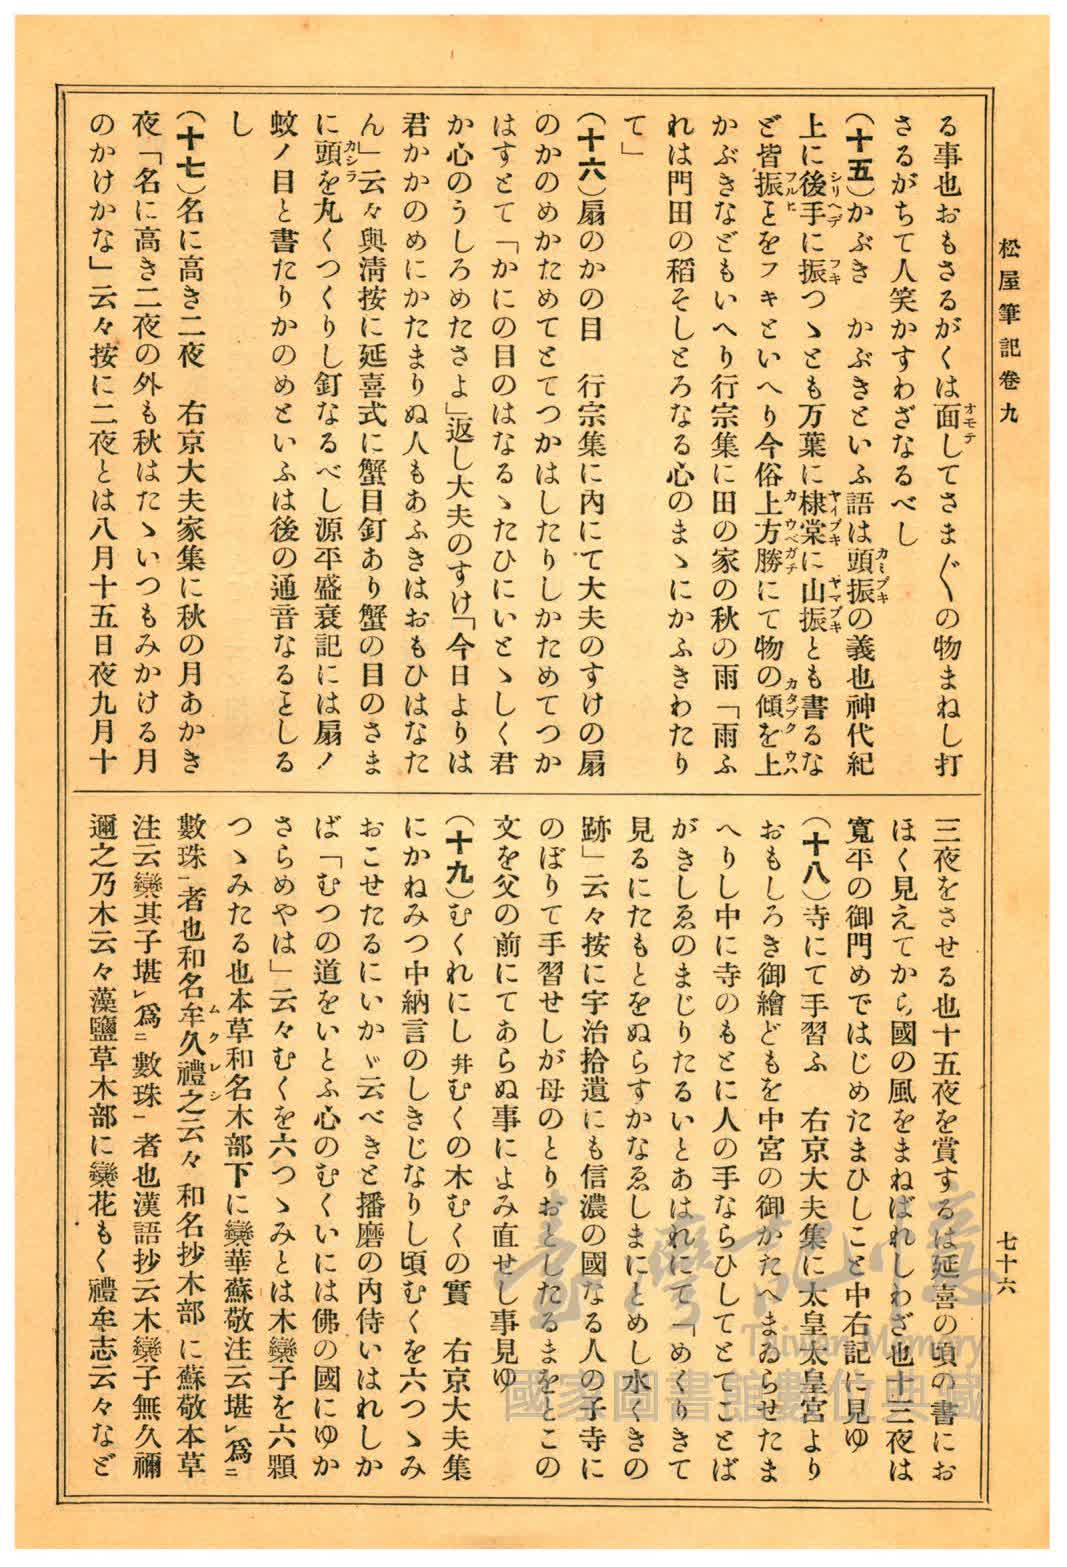 松屋筆記卷九
七十六
る事也おもさるがくは面してさま〴〵の物まねし打
オモテ
さるがちて人笑かすわざなるべし
(十五)かぶき　かぶきといふ語は頭振の義也神代紀
カミブキ
上に後手に振つゝとも万葉に棣棠に山振とも書るな
シリヘデ　フキ　ヤイブキ　ヤマブキ
ど皆振とをフキといへり今俗上方勝にて物の傾を上
フルヒ　カウベガチ　カタブク　ウハ
かぶきなどもいへり行宗集に田の家の秋の雨「雨ふ
れは門田の稻そしとろなる心のまゝにかふきわたり
て」
(十六)扇のかの目　行宗集に內にて大夫のすけの扇
のかのめかためてとてつかはしたりしかためてつか
はすとて「かにの目のはなるゝたひにいとゝしく君
か心のうしろめたさよ」返し大夫のすけ「今日よりは
君かかのめにかたまりぬ人もあふきはおもひはなた
ん」云々與淸按に延喜式に蟹目釘あり蟹の目のさま
に頭を丸くつくりし釘なるべし源平盛衰記には扇ノ
カシラ
蚊ノ目と書たりかのめといふは後の通音なるとしる
し
(十七)名に高き二夜　右京大夫家集に秋の月あかき
夜「名に高き二夜の外も秋はたゝいつもみかける月
のかけかな」云々按に二夜とは八月十五日夜九月十
三夜をさせる也十五夜を賞するは延喜の頃の書にお
ほく見えてから國の風をまねばれしわざ也十三夜は
寬平の御門めではじめたまひしこと中右記に見ゆ
(十八)寺にて手習ふ　右京大夫集に太皇太皇宮より
おもしろき御繪どもを中宮の御かたへまゐらせたま
へりし中に寺のもとに人の手ならひしてとてことば
がきしゑのまじりたるいとあはれにて「めくりきて
見るにたもとをぬらすかなゑしまにとめし水くきの
跡」云々按に宇治拾遺にも信濃の國なる人の子寺に
のぼりて手習せしが母のとりおとしたるまをとこの
文を父の前にてあらぬ事によみ直せし事見ゆ
(十九)むくれにし 幷むくの木むくの實　右京大夫集
にかねみつ中納言のしきじなりし頃むくを六つゝみ
おこせたるにいかゞ云べきと播磨の內侍いはれしか
ば「むつの道をいとふ心のむくいには佛の國にゆか
さらめやは」云々むくを六つゝみとは木欒子を六顆
つゝみたる也本草和名木部下に欒華蘇敬注云堪㆑爲㆓
數珠㆒者也和名牟久禮之云々 和名抄木部に蘇敬本草
ムクレシ
注云欒其子堪㆑爲㆓數珠㆒者也漢語抄云木欒子無久禰
邇之乃木云々藻鹽草木部に欒花もく禮牟志云々など
臺灣記憶
Taiwan Memory
國家圖書館數位典藏